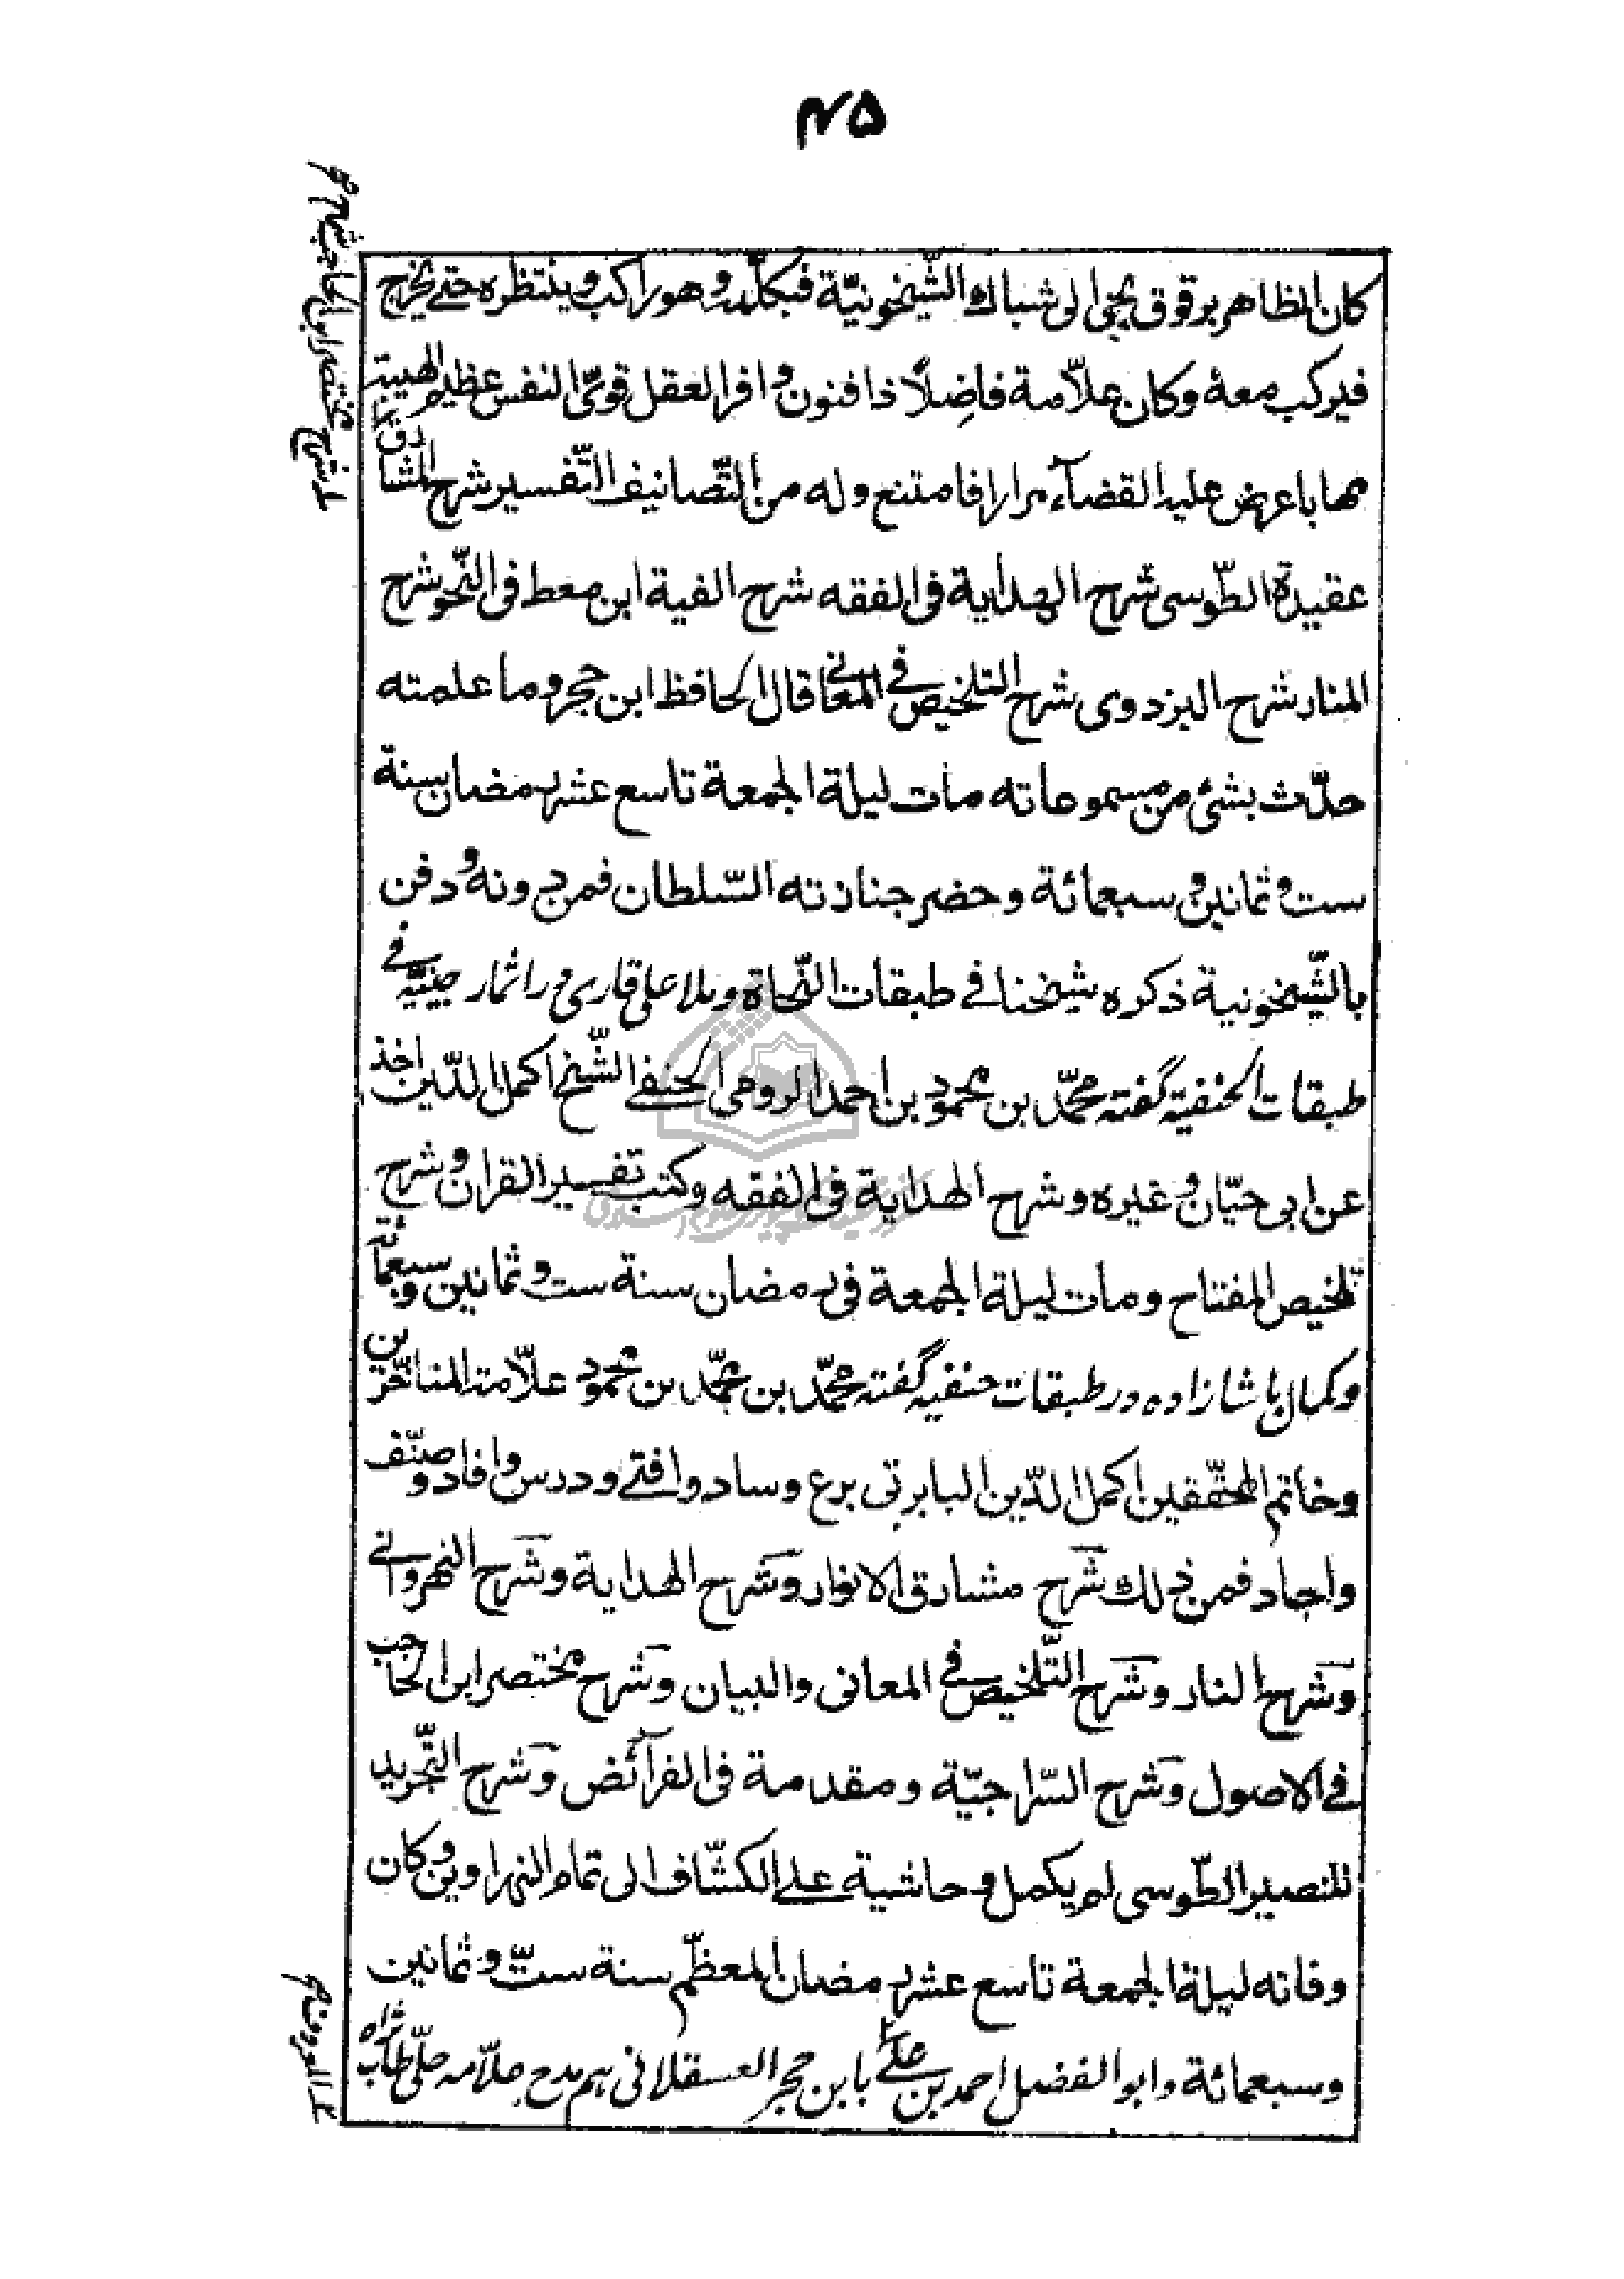 ۴۵
كان الظاهر برقوق يجئ الى شباك الشّيخونيّة فيكلّمه وهو راكب وينتظره حتى يخرج
فيركب معه وكان علّامة فاضلًا ذا فنون وافر العقل قوىّ النفس عظيم الهيبة
مهابا عرض عليه القضآء مرارا فامتنع وله من التّصانيف التّفسير شرح المشارق
شرح مختصر ابن الحاجب شرح
عقيدة الطّوسى شرح الهداية فى الفقه شرح الفية ابن معط فى النّحو شرح
المنار شرح البزدوى شرح التلخيص فى المعانى قال الحافظ ابن حجر وما علمته
حدّث بشئ من مسموعاته مات ليلة الجمعة تاسع عشر رمضان سنة
ست وثمانين وسبعمائة وحضر جنازته السّلطان فمن دونه ودفن
بالشّيخونية ذكره شيخنا فى طبقات النّحاة وملا على قارى در اثمار جنيّه فى
طبقات الحنفيه گفته محمّد بن محمود بن احمد الرومى الحنفى الشّيخ اكمل الدّين اخذ
عن ابى حيّان وغيره وشرح الهداية فى الفقه وكتب تفسير القران وشرح
تلخيص المفتاح ومات ليلة الجمعة فى رمضان سنة ست وثمانين وسبعمائة
وكمال پاشا زاده در طبقات حنفيه گفته محمّد بن محمّد بن محمود علّامة المتاخّرين
وخاتم المحقّقين اكمل الدّين البابرتى برع وساد وافتى ودرس وافاد وصنّف
واجاد فمن ذلك شرح مشارق الانوار وشرح الهداية وشرح النهروانى
وشرح المنار وشرح التّلخيص فى المعانى والبيان وشرح مختصر ابن الحاجب
فى الاصول وشرح السّراجيّة ومقدمة فى الفرآئض وشرح التّجريد
للنصير الطّوسى لم يكمل وحاشية على الكشّاف الى تمام الزهراوين وكان
وفاته ليلة الجمعة تاسع عشر رمضان المعظّم سنة ستّ وثمانين
وسبعمائة وابو الفضل احمد بن على بابن حجر العسقلانى هم مدح علّامه حلّى طاب ثراه
المعروف